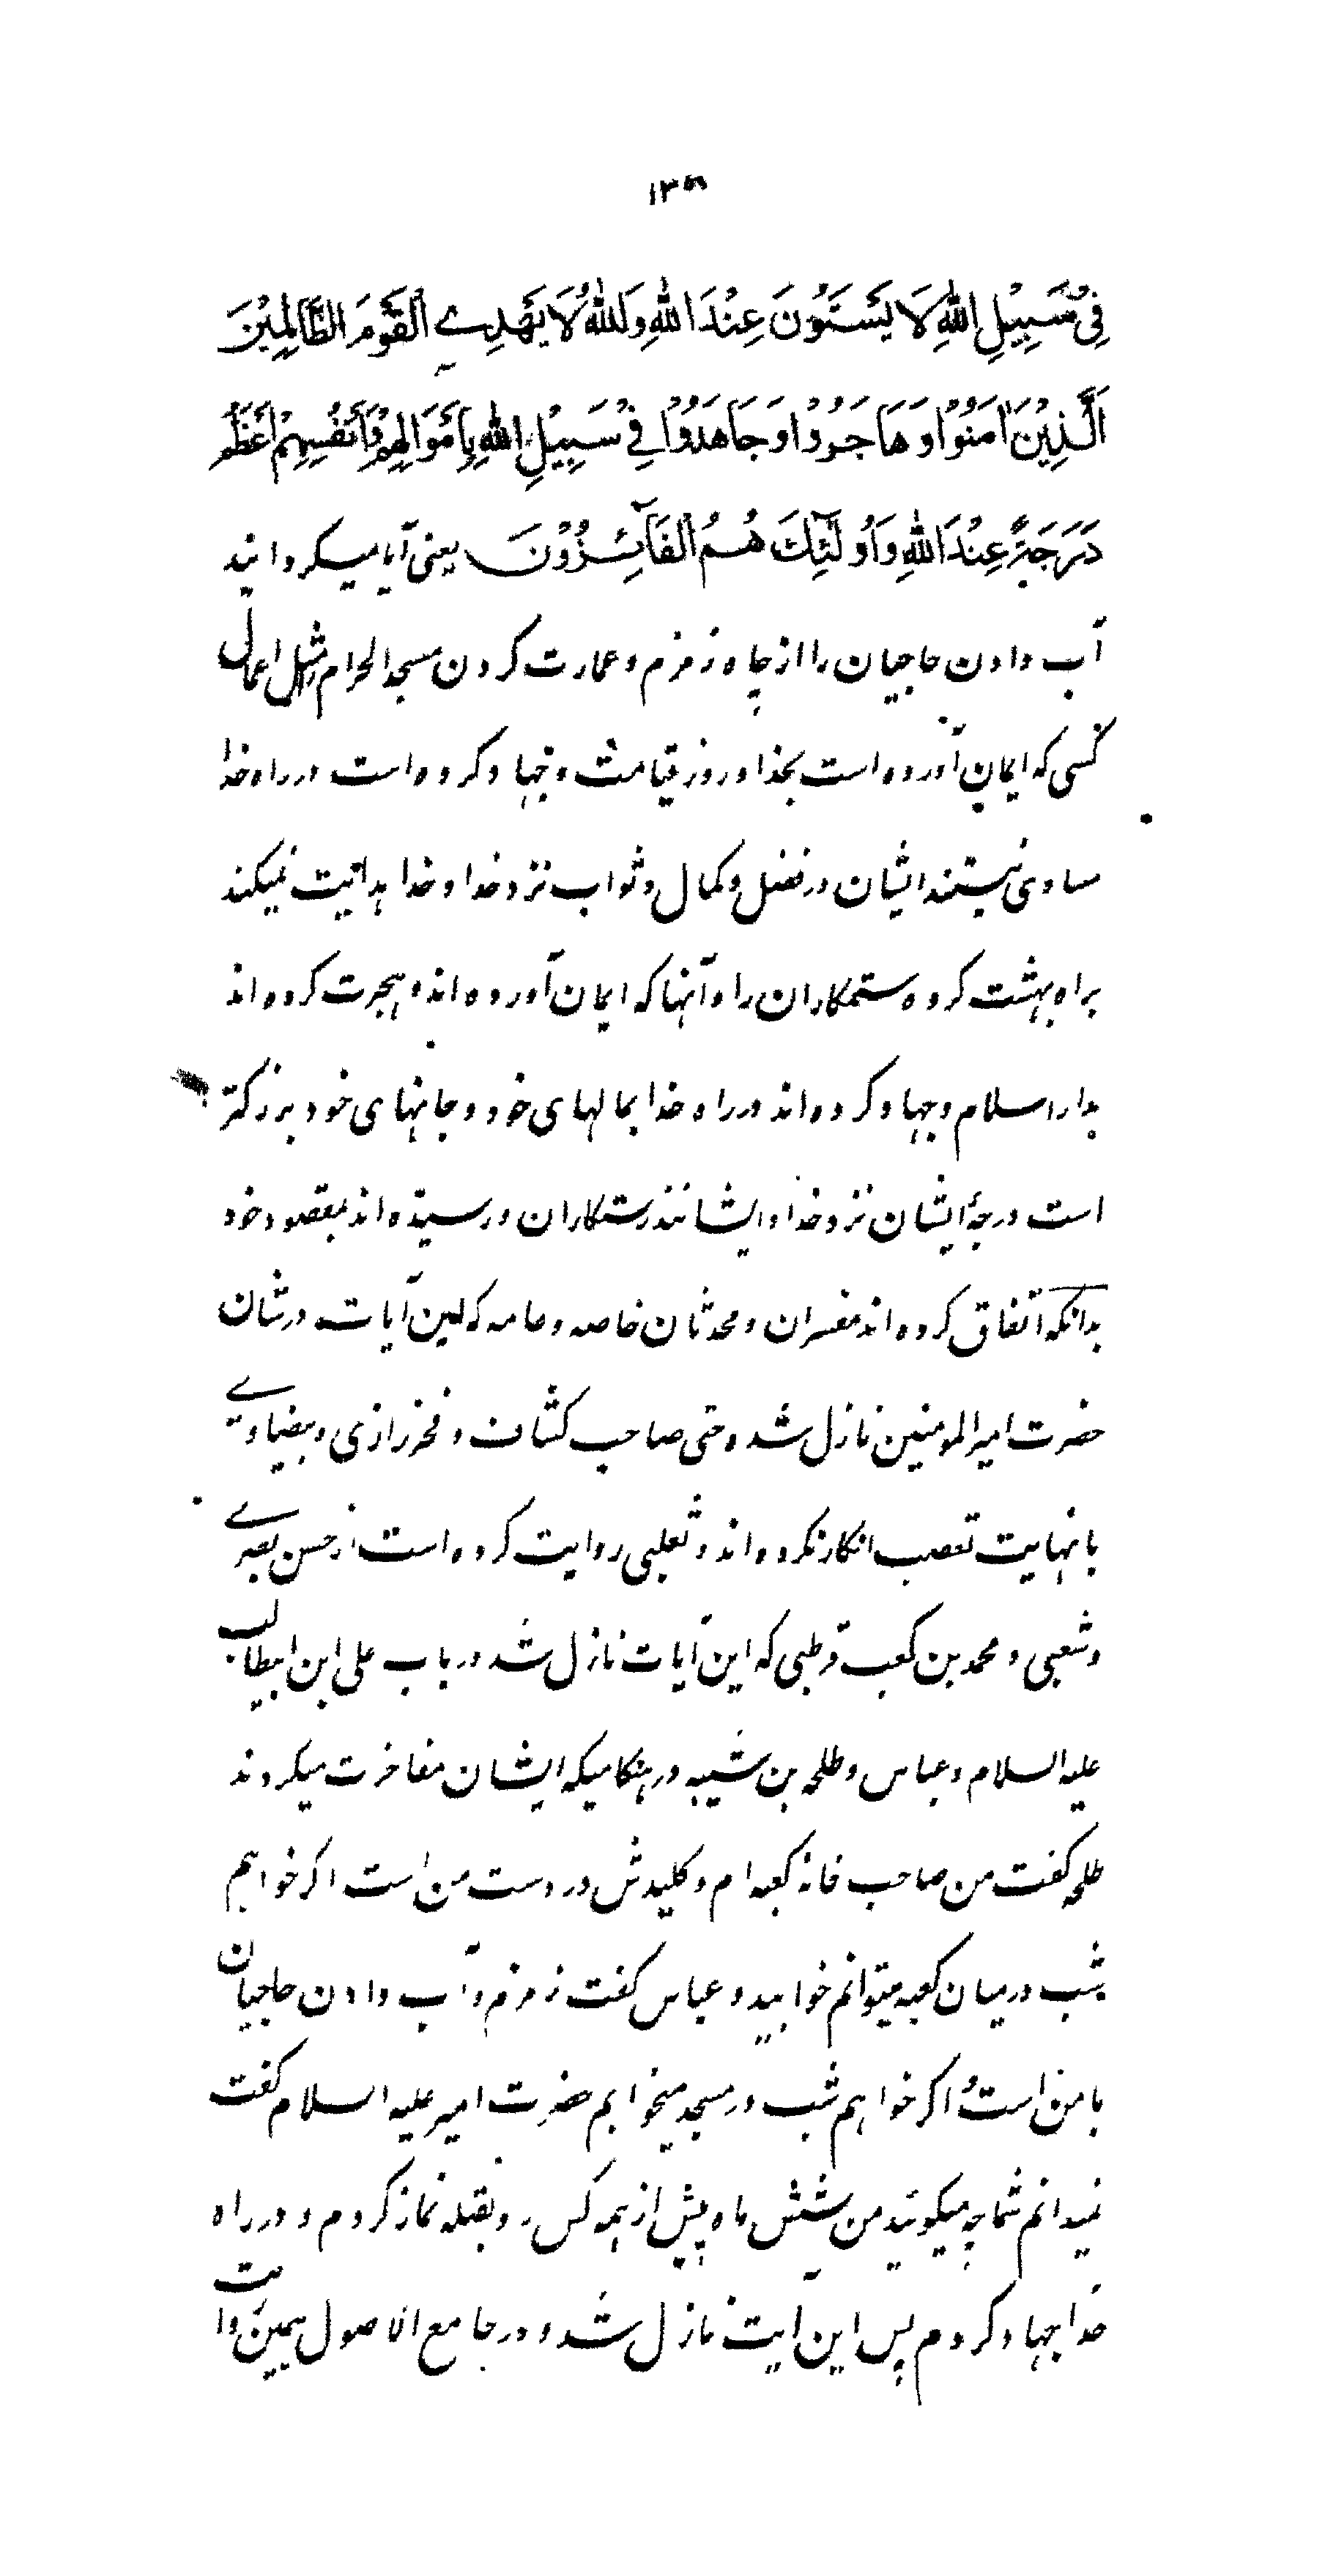 ۱۳۸
فِيْ سَبِيْلِ اللّٰهِ لَا يَسْتَوُنَ عِنْدَ اللّٰهِ وَاللّٰهُ لَا يَهْدِي الْقَوْمَ الظَّالِمِيْنَ
اَلَّذِيْنَ اٰمَنُوْا وَ هَاجَرُوْا وَ جَاهَدُوْا فِيْ سَبِيْلِ اللّٰهِ بِاَمْوَالِهِمْ وَاَنْفُسِهِمْ اَعْظَمُ
دَرَجَةً عِنْدَ اللّٰهِ وَاُولٰٓئِكَ هُمُ الْفَآئِزُوْنَ یعنی آیا میکردانید
آب دادن حاجیان را از چاه زمزم و عمارت کردن مسجد الحرام مثل اعمال
کسی که ایمان آورده است بخدا و روز قیامت و جهاد کرده است در راه خدا
مساوی نیستند ایشان در فضل و کمال و ثواب نزد خدا و خدا هدایت نمیکند
براه بهشت کروه ستمکاران را و آنها که ایمان آورده اند و هجرت کرده اند
بدار اسلام و جهاد کرده اند در راه خدا بمالهای خود و جانهای خود بزرکتر
است درجهٔ ایشان نزد خدا و ایشانند رستکاران و رسیده اند بمقصود خود
بدانکه اتفاق کرده اند مفسران و محدثان خاصه و عامه که این آیات در شان
حضرت امیر المومنین نازل شده حتی صاحب کشاف و فخر رازی و بیضاوی
با نهایت تعصب انکار نکرده اند و ثعلبی روایت کرده است از حسن بصری
و شعبی و محمد بن کعب قرظی که این آیات نازل شد در باب علی ابن ابیطالب
علیه السلام و عباس و طلحه بن شیبه در هنکامیکه ایشان مفاخرت میکردند
طلحه کفت من صاحب خانهٔ کعبه ام و کلیدش در دست من است اکر خواهم
شب در میان کعبه میتوانم خوابید و عباس کفت زمزم و آب دادن حاجیان
با من است و اکر خواهم شب در مسجد میخوابم حضرت امیر علیه السلام کفت
نمیدانم شما چه میکوئید من شش ماه پیش از همه کس رو بقبله نماز کردم و در راه
خدا جهاد کردم پس این آیت نازل شد و در جامع الاصول همین روایت